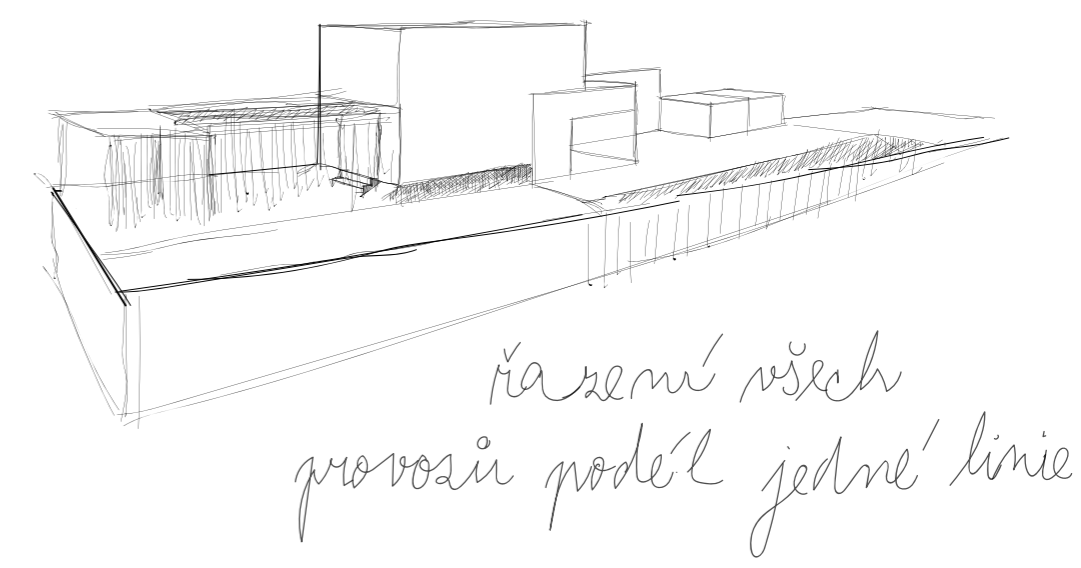 řazení všech
provozů podél jedné linie